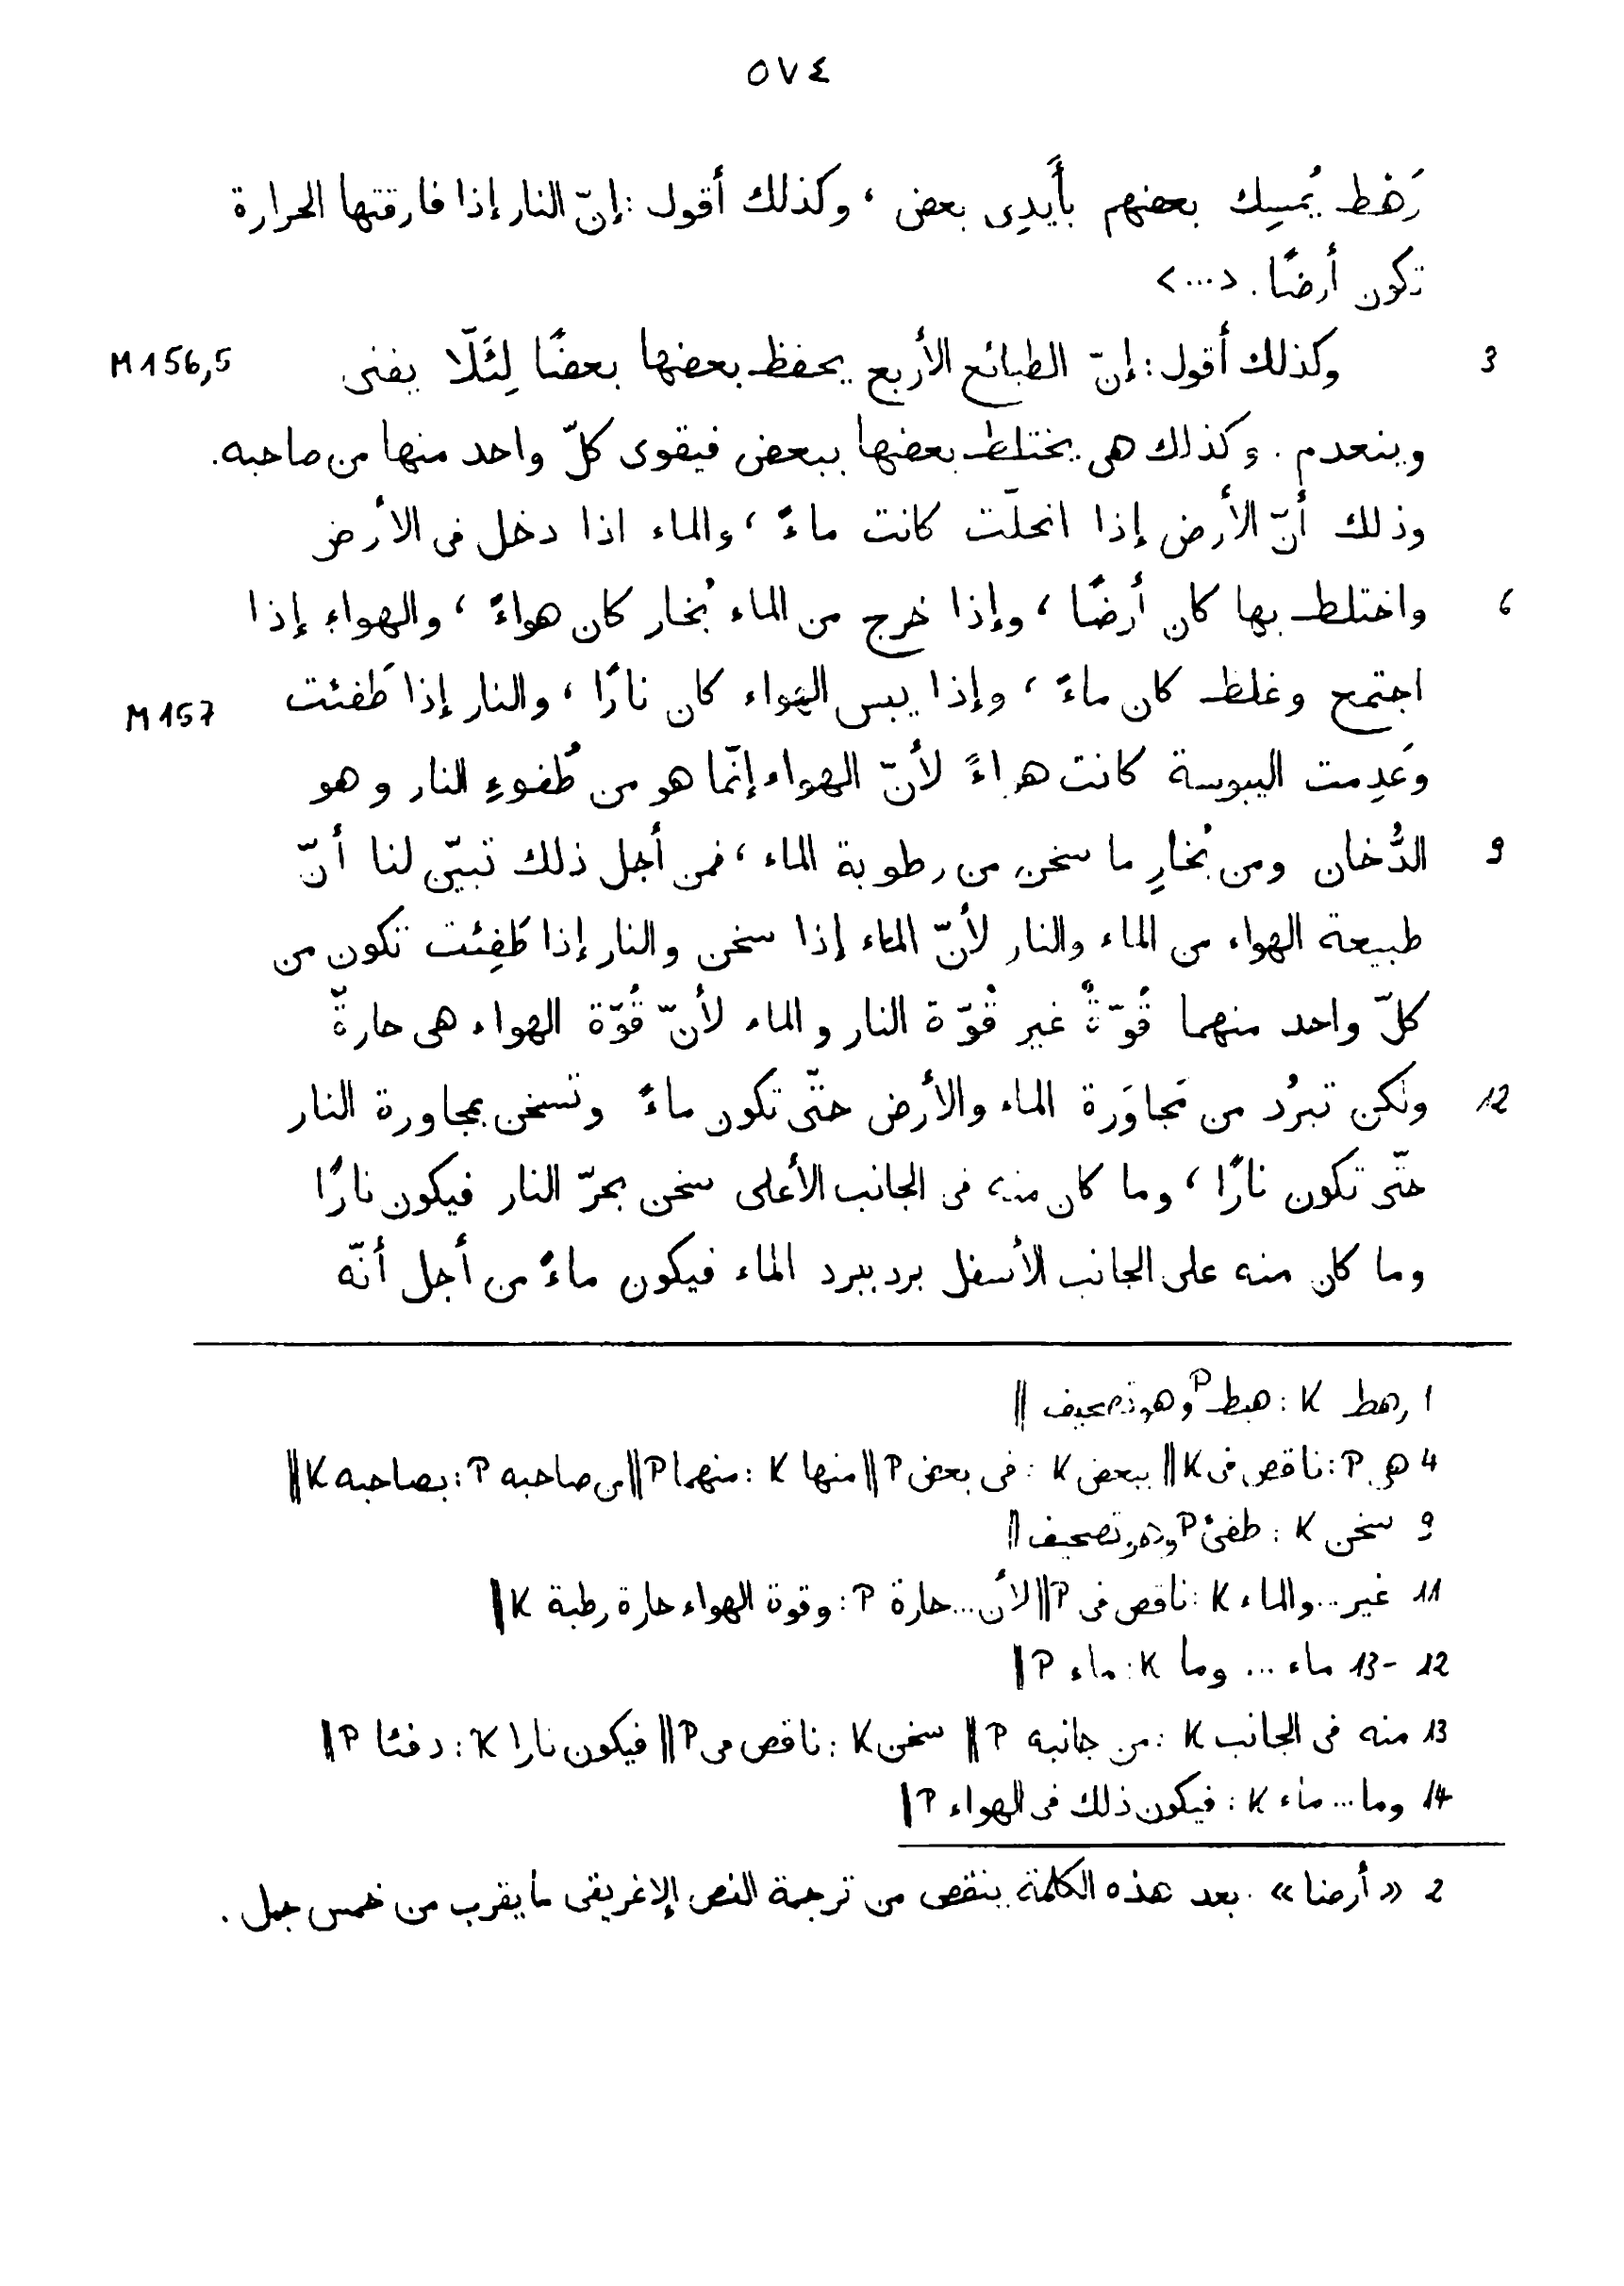 ٥٧٤
رَهْط يُمسِك بعضهم بأَيدِى بعض ، وكذلك أقول : إنّ النار إذا فارقتها الحرارة
تكون أرضًا . <...>
3 وكذلك أقول : إنّ الطبائع الأربع يحفظ بعضها بعضًا لِئَلّا يفنى M 156,5
وينعدم . وكذلك هى يختلط بعضها ببعض فيقوى كلّ واحد منها من صاحبه .
وذلك أنّ الأرض إذا انحلّت كانت ماءً ، والماء اذا دخل فى الأرض
6 واختلط بها كان أرضًا ، وإذا خرج من الماء بُخار كان هواءً ، والهواء إذا
اجتمع وغلظ كان ماءً ، وإذا يبس الهواء كان نارًا ، والنار إذا طَفئت M 157
وعَدِمت اليبوسة كانت هواءً لأنّ الهواء إنّما هو من طُفوءِ النار وهو
9 الدُّخان ومن بُخارِ ما سخن من رطوبة الماء ، فمن أجل ذلك تبيّن لنا أنّ
طبيعة الهواء من الماء والنار لأنّ الماء إذا سخن والنار إذا طَفِئت تكون من
كلّ واحد منهما قُوّةٌ غير قُوّة النار والماء لأنّ قُوّة الهواء هى حارةٌ
12 ولكن تبرُد من مَجاوَرة الماء والأرض حتّى تكون ماءً وتسخن بمجاورة النار
حتّى تكون نارًا ، وما كان منه فى الجانب الأعلى سخن بحرّ النار فيكون نارًا
وما كان منه على الجانب الأسفل برد ببرد الماء فيكون ماءً من أجل أنّه
1 رهط K : هبط P وهو تصحيف ||
4 هى P : ناقص فى K || ببعض K : فى بعض P || منها K : منهما P || من صاحبه P : بصاحبه K ||
9 سخن K : طفئ P وهو تصحيف ||
11 غير ... والماء K : ناقص فى P || لأن ... حارة P : وقوة الهواء حارة رطبة K ||
12 - 13 ماء ... وما K : ماء P ||
13 منه فى الجانب K : من جانبه P || سخن K : ناقص فى P || فيكون نارا K : دفئا P ||
14 وما ... ماء K : فيكون ذلك فى الهواء P ||
2 «أرضا» بعد هذه الكلمة ينقص من ترجمة النص الإغريقى ما يقرب من خمس جمل .